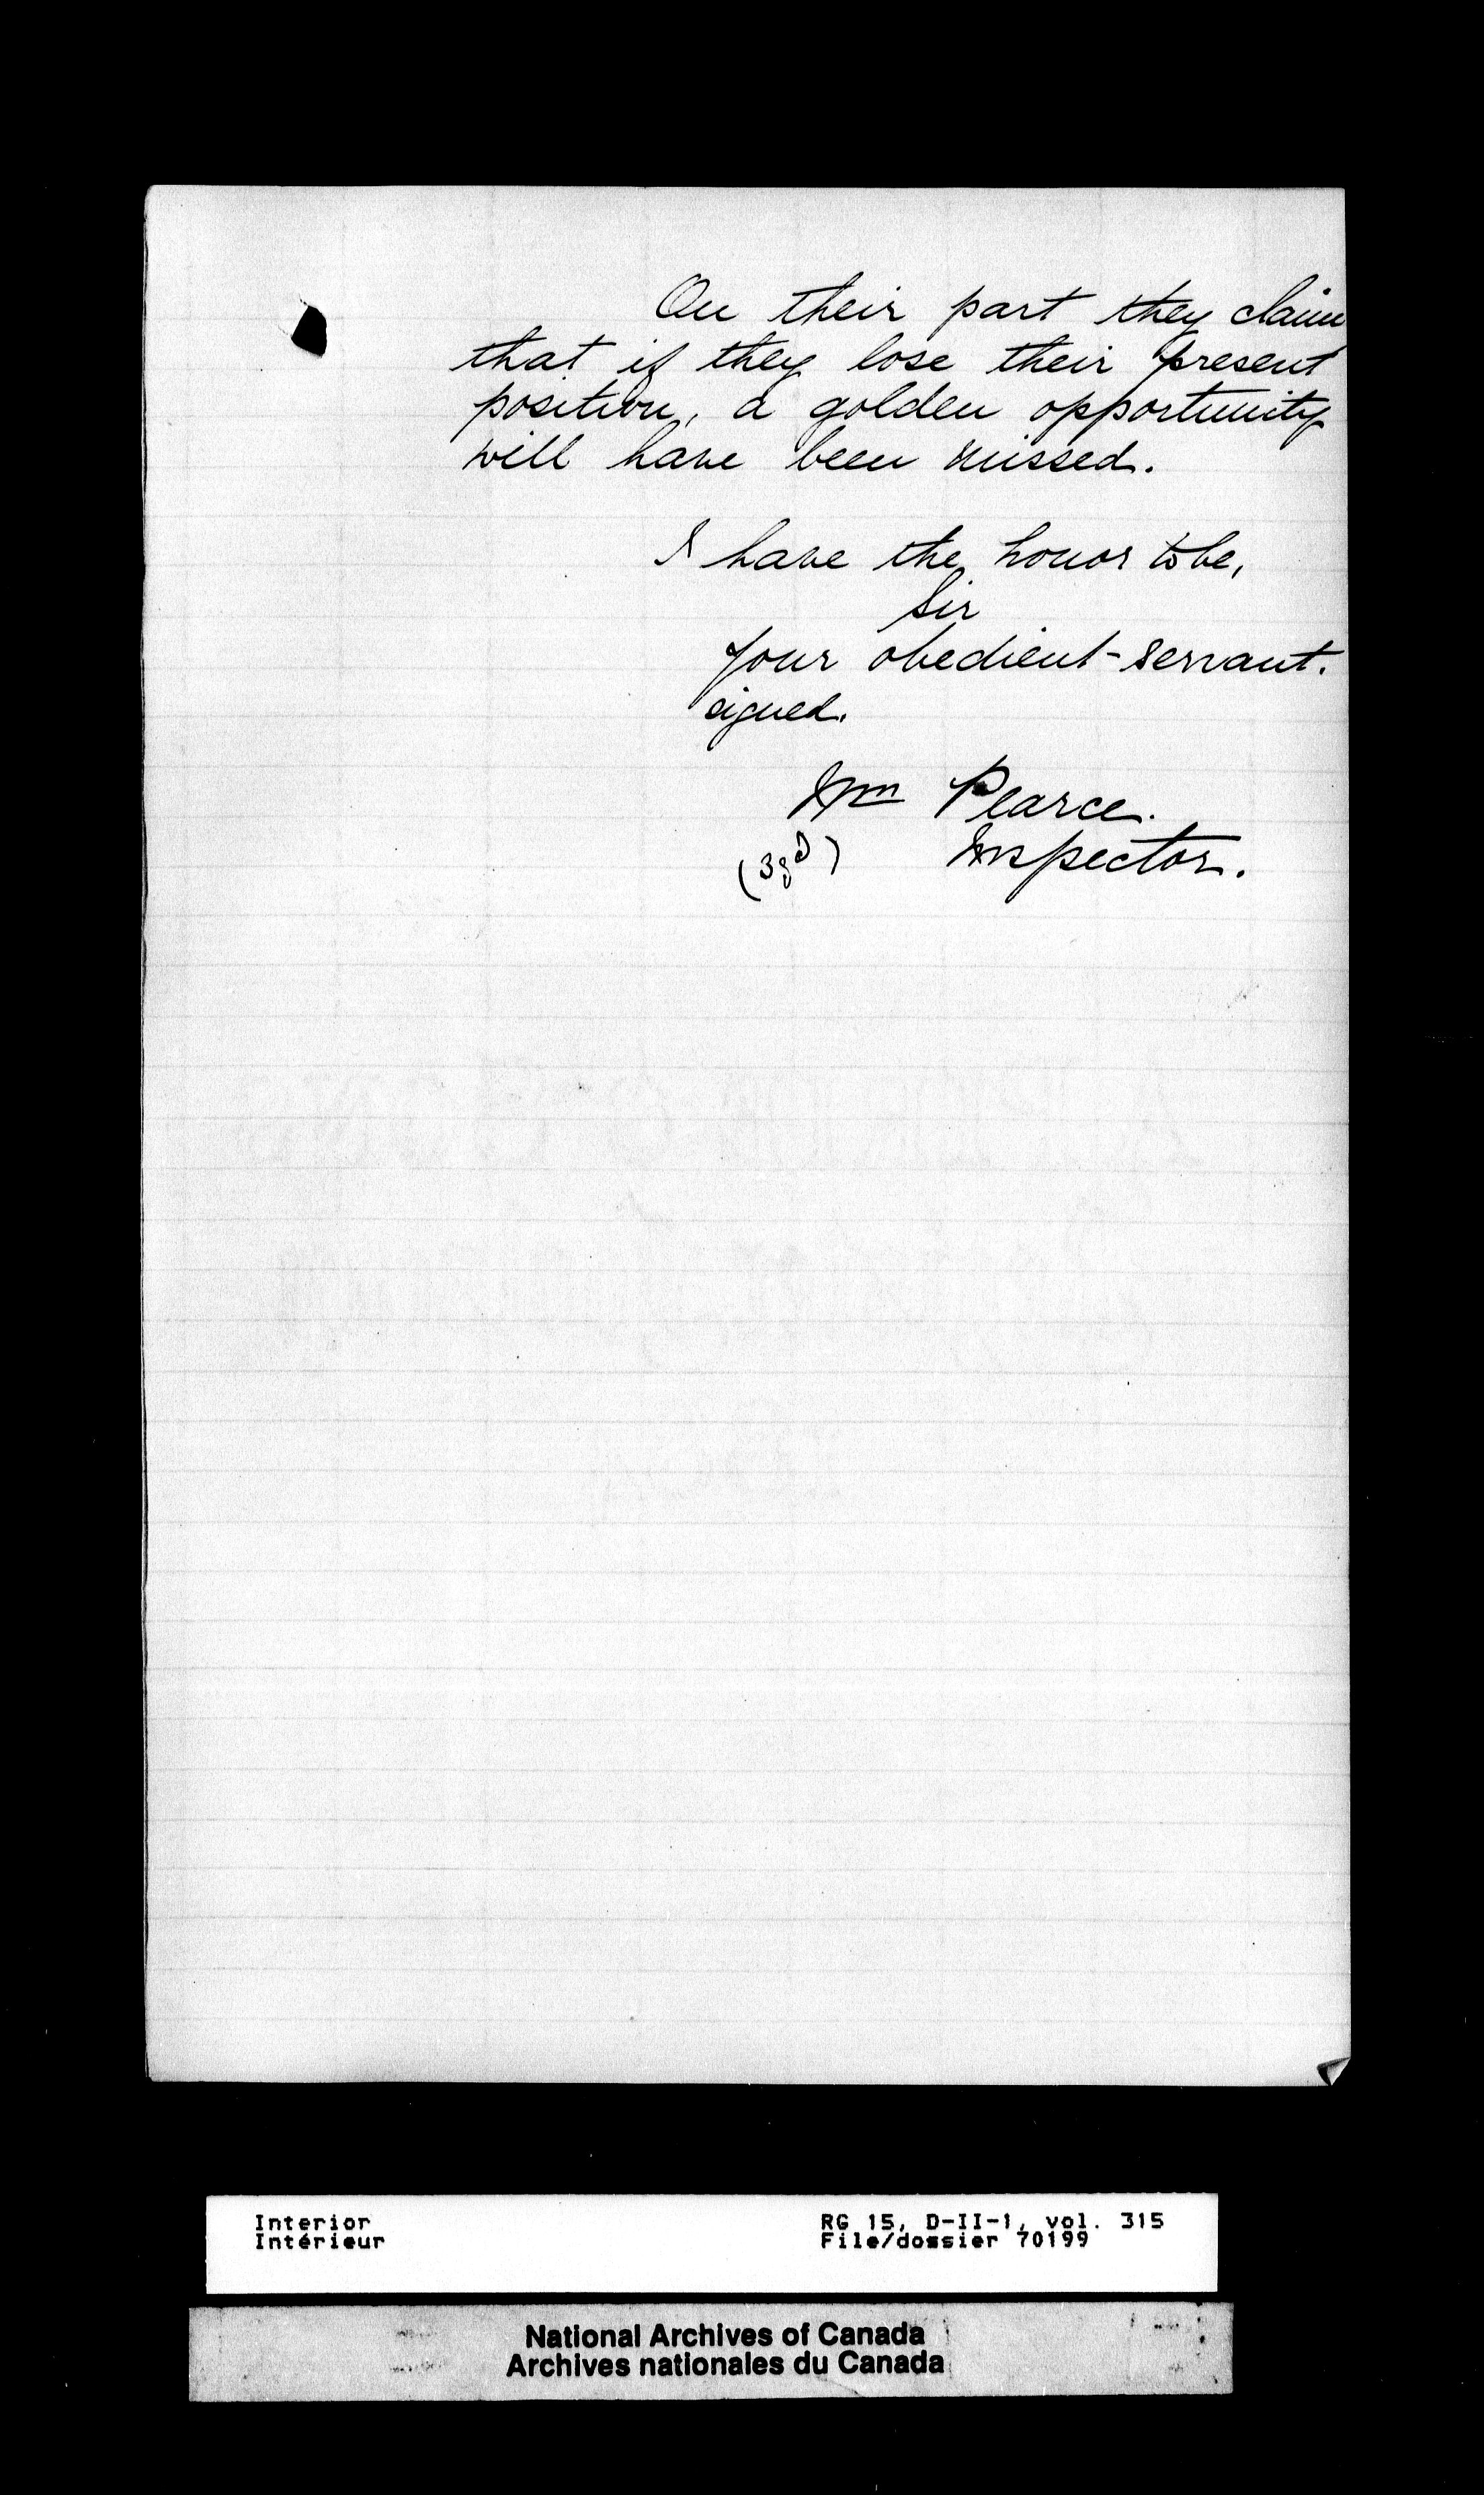 On their part they claim
that if they lose their present
position, a golden opportunity
will have been missed.
I have the honor to be,
Sir
Your obedient servant.
signed.
Wm Pearce.
Inspector.
Interior
Intérieur
RG 15, D-II-1, vol. 315
File/dossier 70199
National Archives of Canada
Archives nationales du Canada